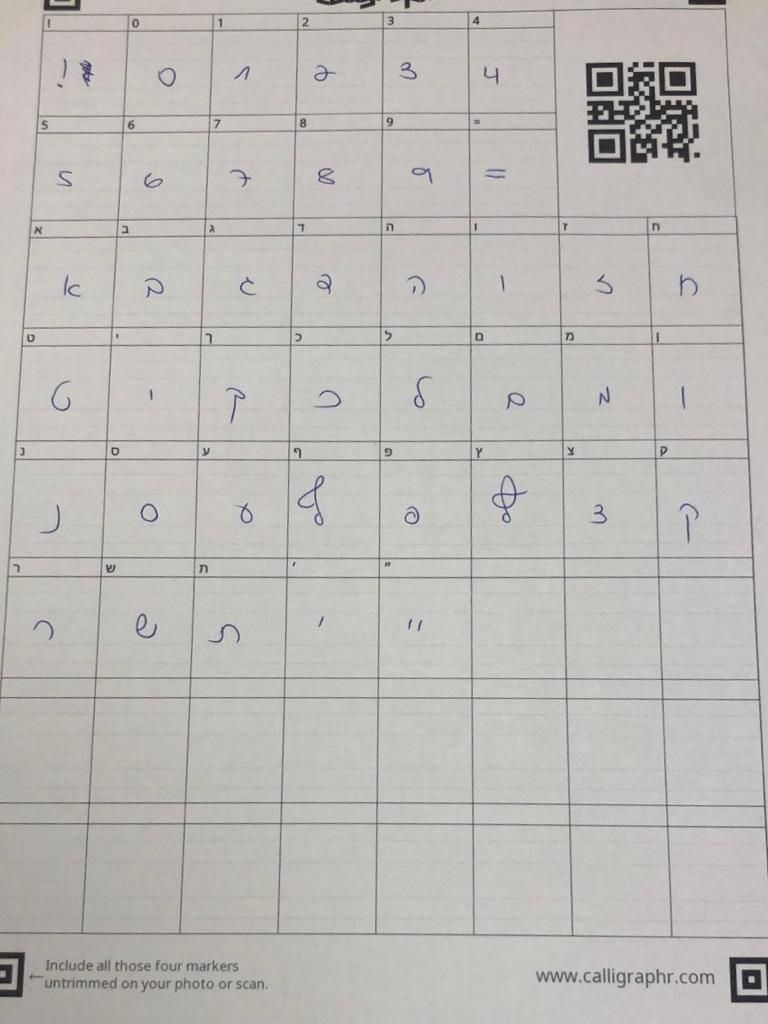 ! 0 1 2 3 4
! 0 1 2 3 4
5 6 7 8 9 =
5 6 7 8 9 =
א ב ג ד ה ו ז ח
א ב ג ד ה ו ז ח
ט י ך כ ל ם מ ן
ט י ך כ ל ם מ ן
נ ס ע ף פ ץ צ ק
נ ס ע ף פ ץ צ ק
ר ש ת ׳ ״
ר ש ת ׳ ״
←Include all those four markers
untrimmed on your photo or scan.
www.calligraphr.com